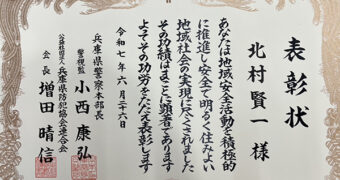 表彰状
北村賢一様
あなたは地域安全活動を積極的
に推進し安全で明るく住みよい
地域社会の実現に尽くされました
その功績はまことに顕著であります
よってその功労をたたえ表彰します
令和七年六月二十六日
兵庫県警察本部長
警視監 小西康弘
公益社団法人 兵庫県防犯協会連合会
会長 増田晴信